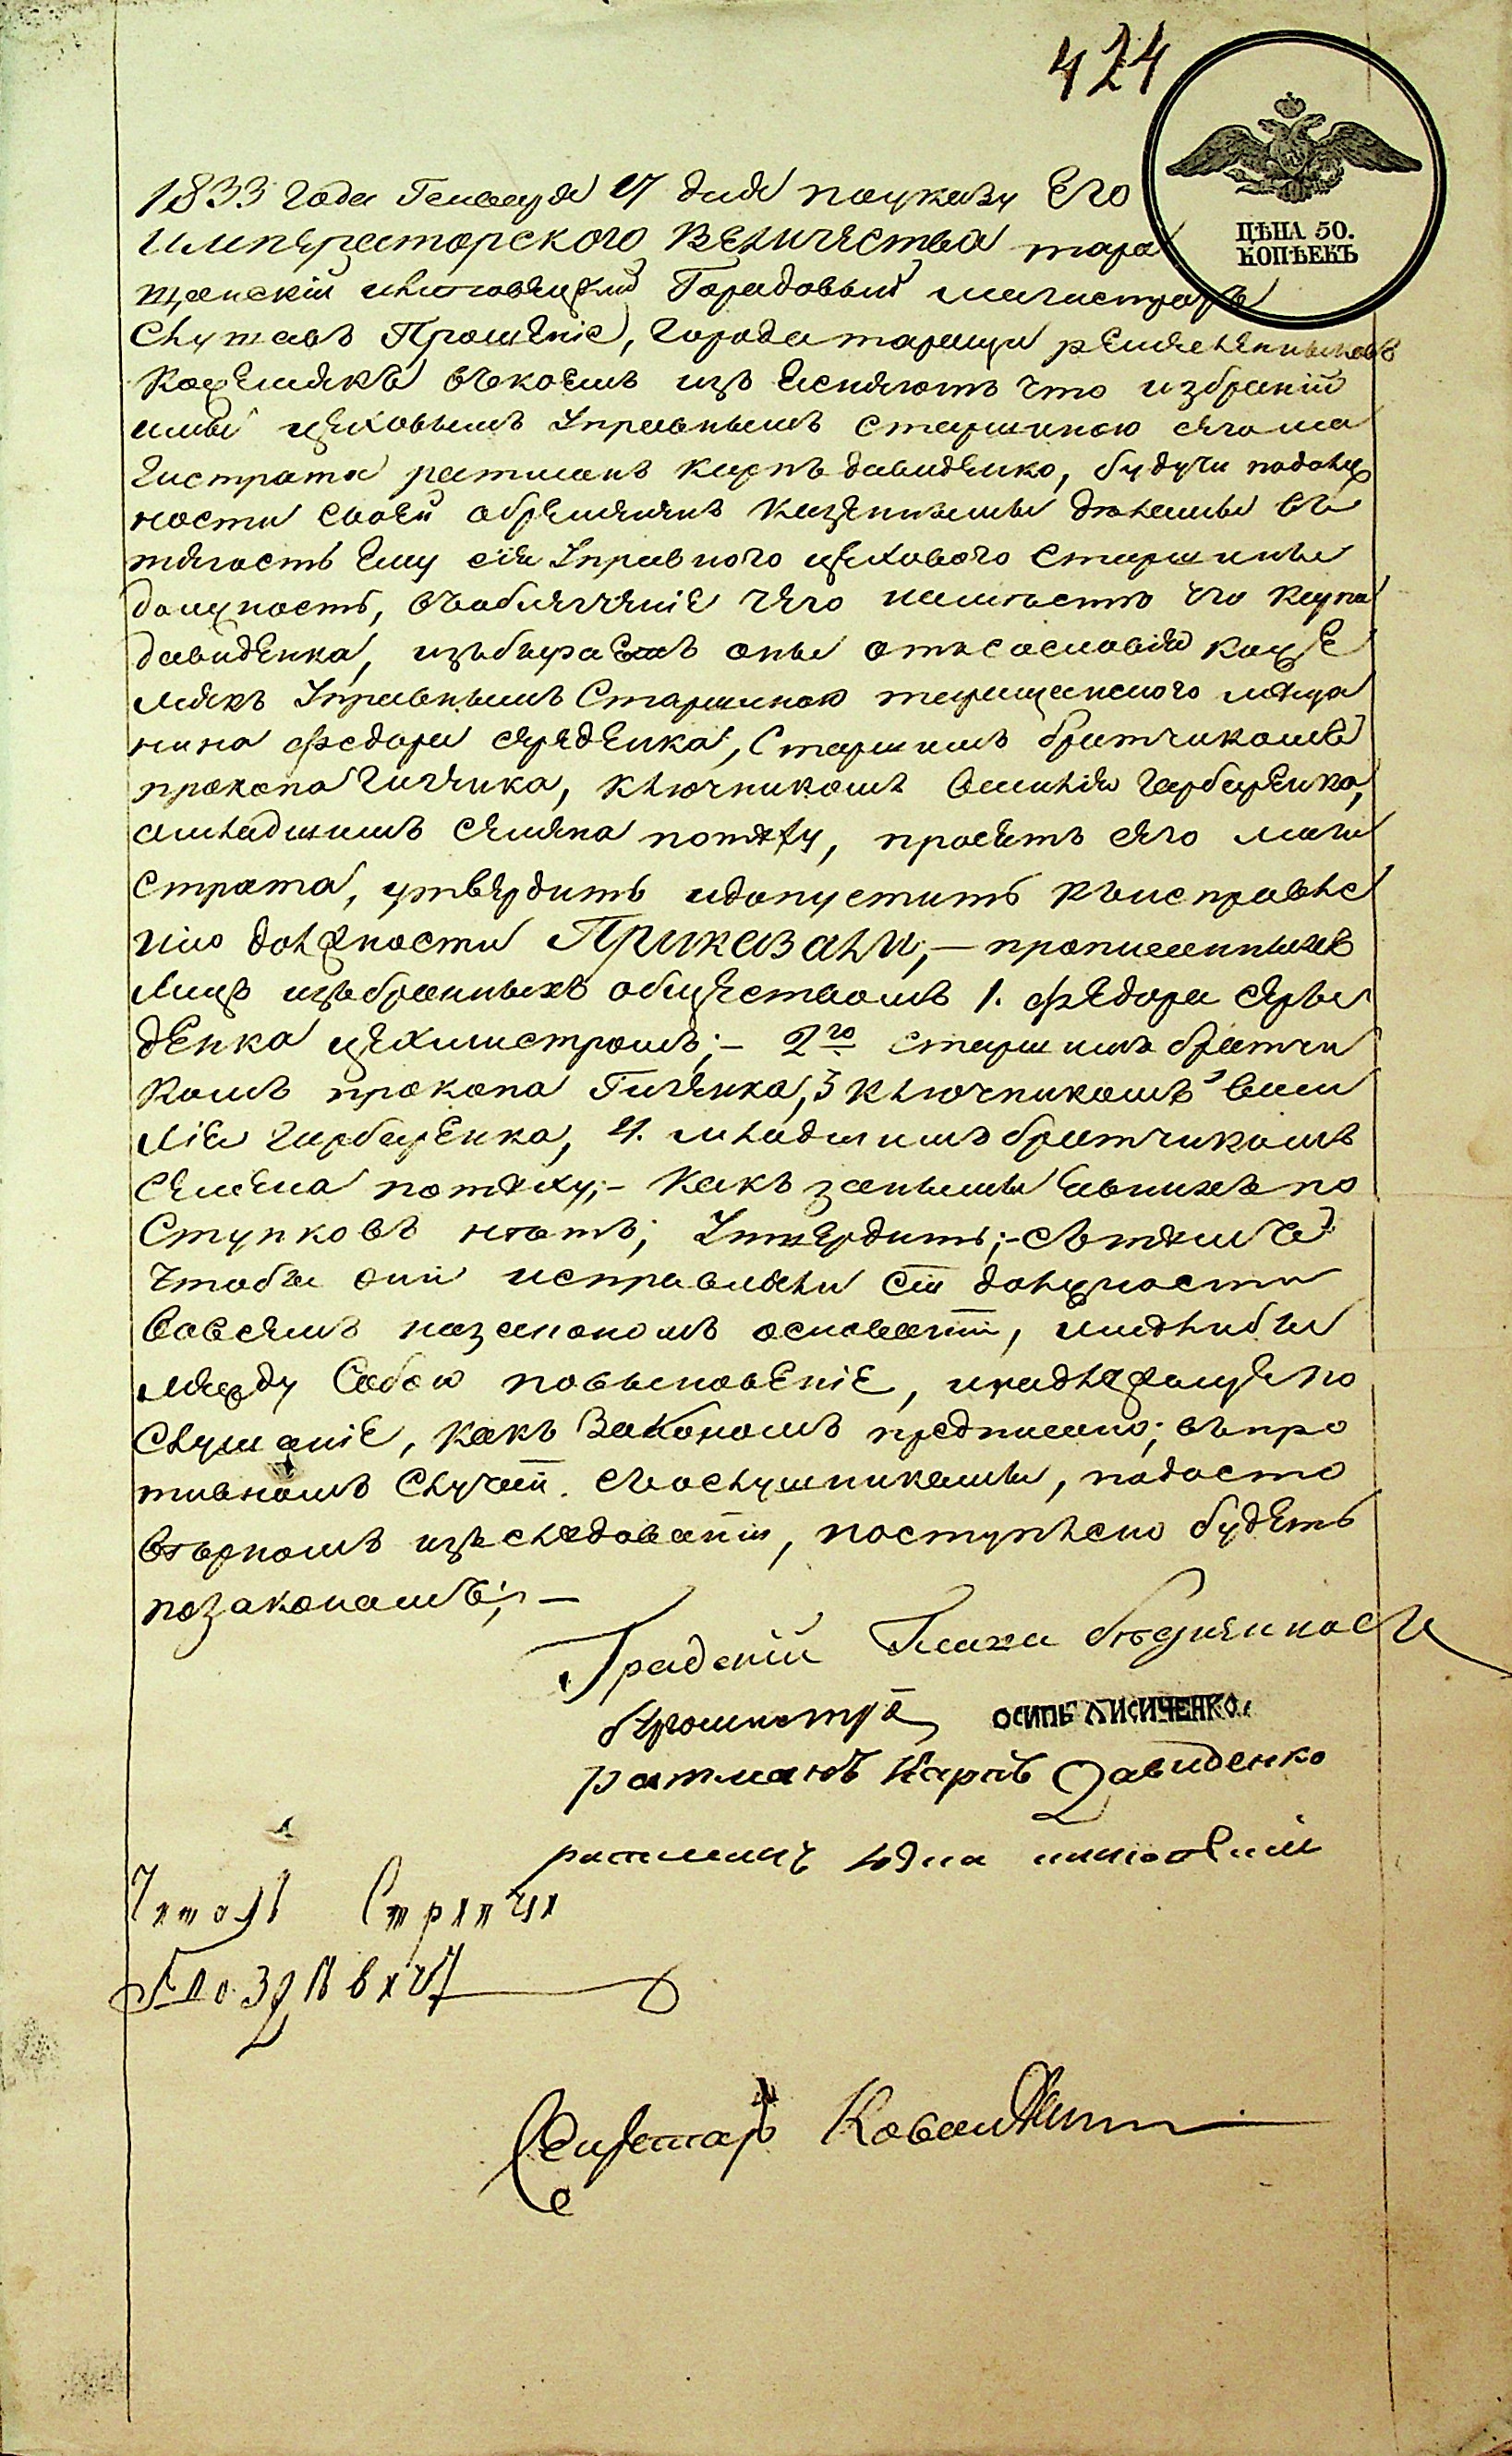 424
ЦѢНА 50.
КОПѢЕКЪ
1833 года Генваря 27 дня поуказу Его
Императорского Величества тара
щанскій Городовый магистратъ
слушавъ Прошеніе, города таращи ремесленниковъ
Кожемякъ въкоемъ изъ Ясняютъ что избраній
ими цеховымъ Управнымъ Старшиною сего ма
гистрата ратманъ карпъ давиденко, будучи подолж
ности своей обремененъ казенными делами въ
тягость Ему сія Управного цехового Старшины
должность, въоблегченіе чего намѣсто Его карпа
давиденка, изъбыра оны отъсословія коже
мякъ Управнымъ Старшиною таращанского меща
нина федора середенка, Старшимъ братчикомъ
прокопа Гиченка, ключникомъ Василія гарбаренка,
амладшимъ Семена потяку, просятъ сего маги
страта, утвердить идопустить къисправле
нию должности Приказали, — прописанныхъ
лицъ изъбранныхъ обществомъ 1. федора сере
денка цехмистромъ; — 2го старшимъ братчи
комъ прокопа Гиченка, 3 ключникомъ васи
лія гарбаренка, 4. младшимъ братчикомъ
семена потяку; — какъ заними по
ступковъ нѣтъ; Утвердить; — сътѣмъ
чтобы они исправляли сіи должности
вовсемъ назакономъ основаніи, имѣлибы
между Собою повыновеніе, инадлежащее по
слушаніе, какъ Закономъ предписано; въпро
тивномъ случаи. съослушниками, подосто
вѣрномъ изъследованіи, поступлено будетъ
позаконамъ; —
Градскій Глава
бургомистръ ОСИПЪ ЛИСИЧЕНКО.
ратманъ Карпъ Давиденко
ратманъ
Читалъ Стряпчи
Секретарь